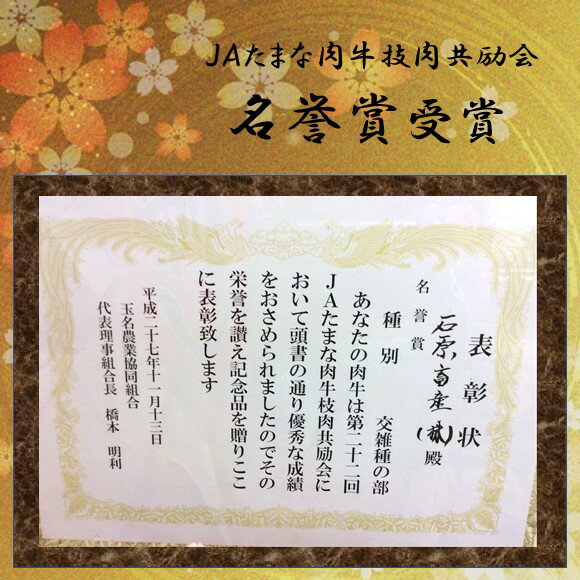 JAたまな肉牛技肉共励会
名誉賞受賞
表彰状
名誉賞
石原畜産(株)殿
種別 交雑種の部
あなたの肉牛は第二十二回
JAたまな肉牛枝肉共励会に
おいて頭書の通り優秀な成績
をおさめられましたのでその
栄誉を讃え記念品を贈りここ
に表彰致します
平成二十七年十一月十三日
玉名農業協同組合
代表理事組合長 橋本 明利